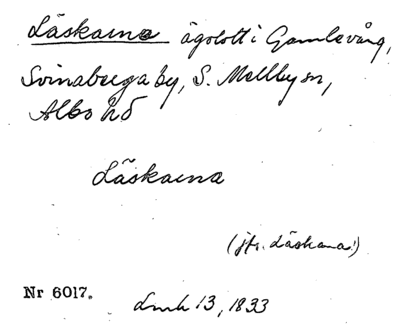 Läskarna ägolott i Gamlevång,
Svinaberga by, S. Mellby sn,
Albo hd
Läskarna
(jfr. Läskana!)
Nr 6017.
Lmh 13, 1833